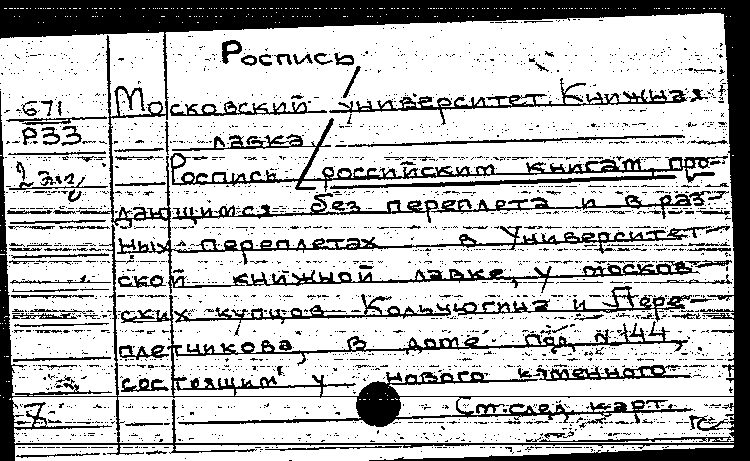 Роспись
671
Р33
2 экз
Московский университет. Книжная
лавка.
Роспись российским книгам, про-
дающимся без переплета и в раз-
ных переплетах в Университет-
ской книжной лавке, у москов-
ских купцов Кольчюгина и Пере-
плетчикова, в доме под N 144,
состоящим у нового каменного
См. след. карт.